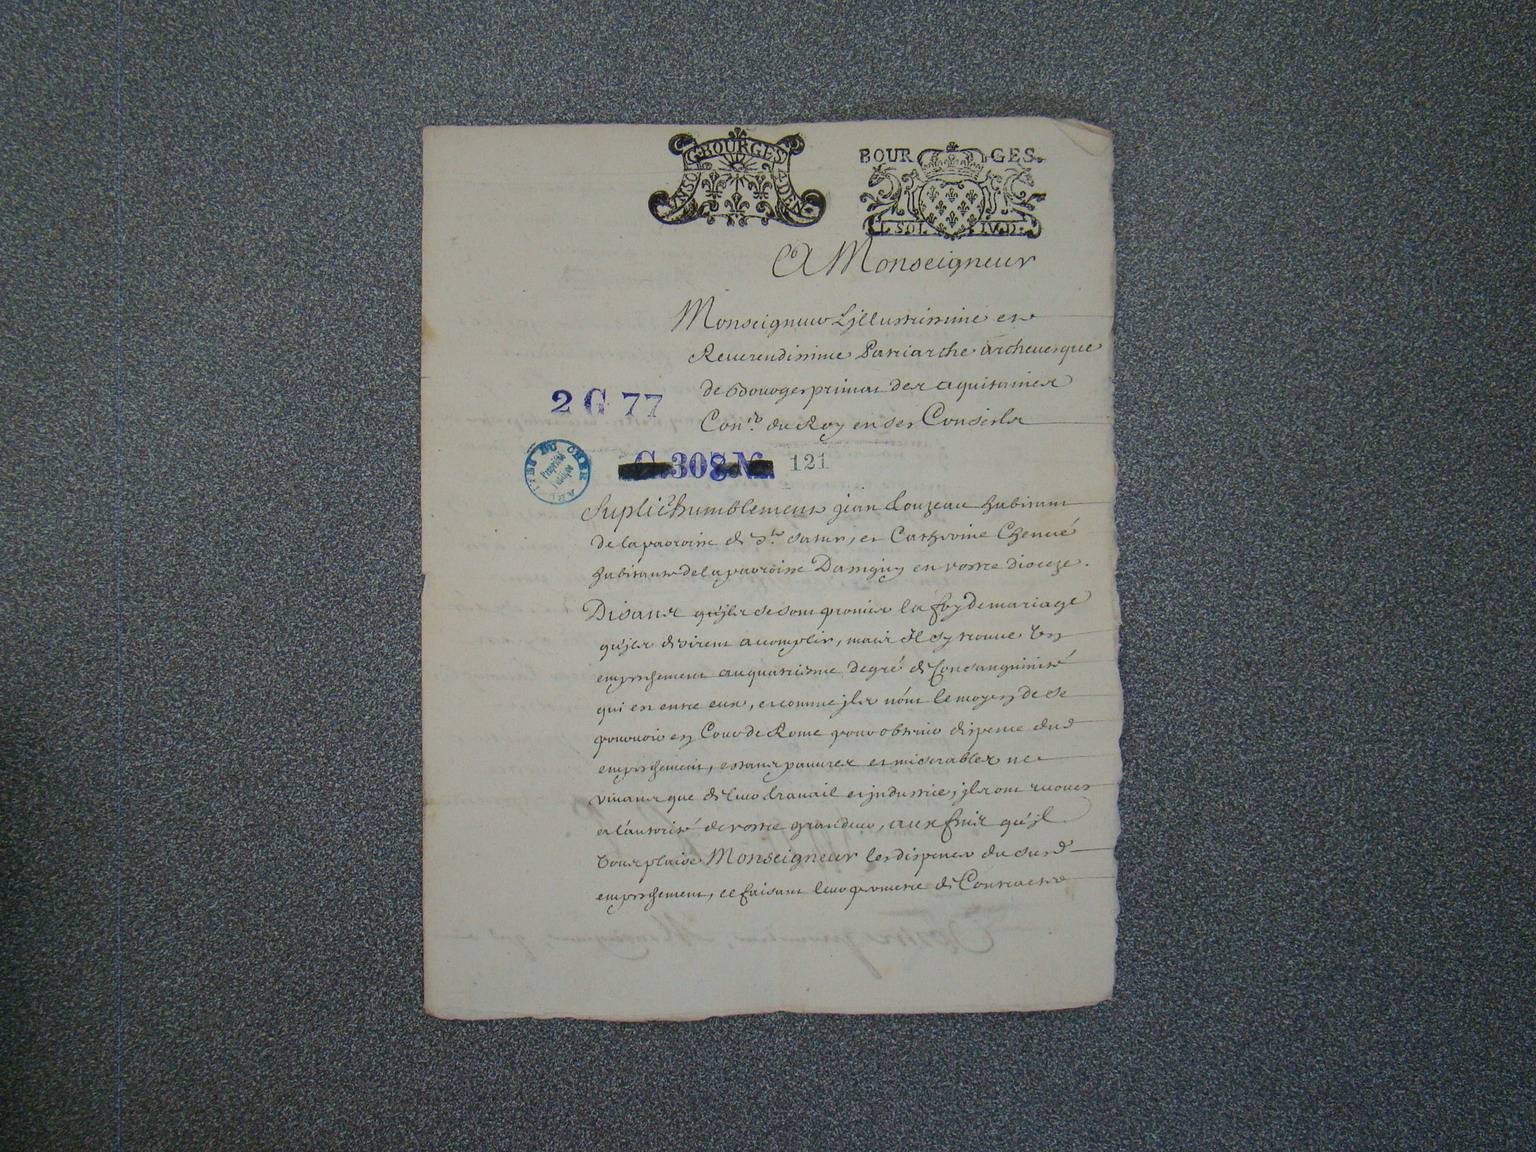 G. BOURGES
BOURGES.
1. SOL IV. D.
A Monseigneur
Monseigneur Lillustrissime et
Reverendissime Patriarche archeuesque
de Bourges primat des aquitaines
Con.er du Roy en ses Conseils
2 G 77
G. 308 121
ARCHIVES DU CHER
Suplie humblement jean Louzeau habitant
de la paroisse de St satur, et Catherine Chenué
habitante de la paroisse Dassigny en vostre dioceze.
Disant quils se sont promis la foy de mariage
quils desirent acomplir, mais il sy trouue un
empeschement au quatriesme degré de Consanguinité
qui est entre eux, et comme ils nont le moyen de se
pouruoir en Cour de Rome pour obtenir dispense dud
empeschement, estant pauures et miserables ne
viuant que de leur trauail et industrie, ils ont recours
a lautorité de vostre grandeur, aux fins quil
Vous plaise Monseigneur les dispenser du susd
empeschement, ce faisant leur permettre de Contracter